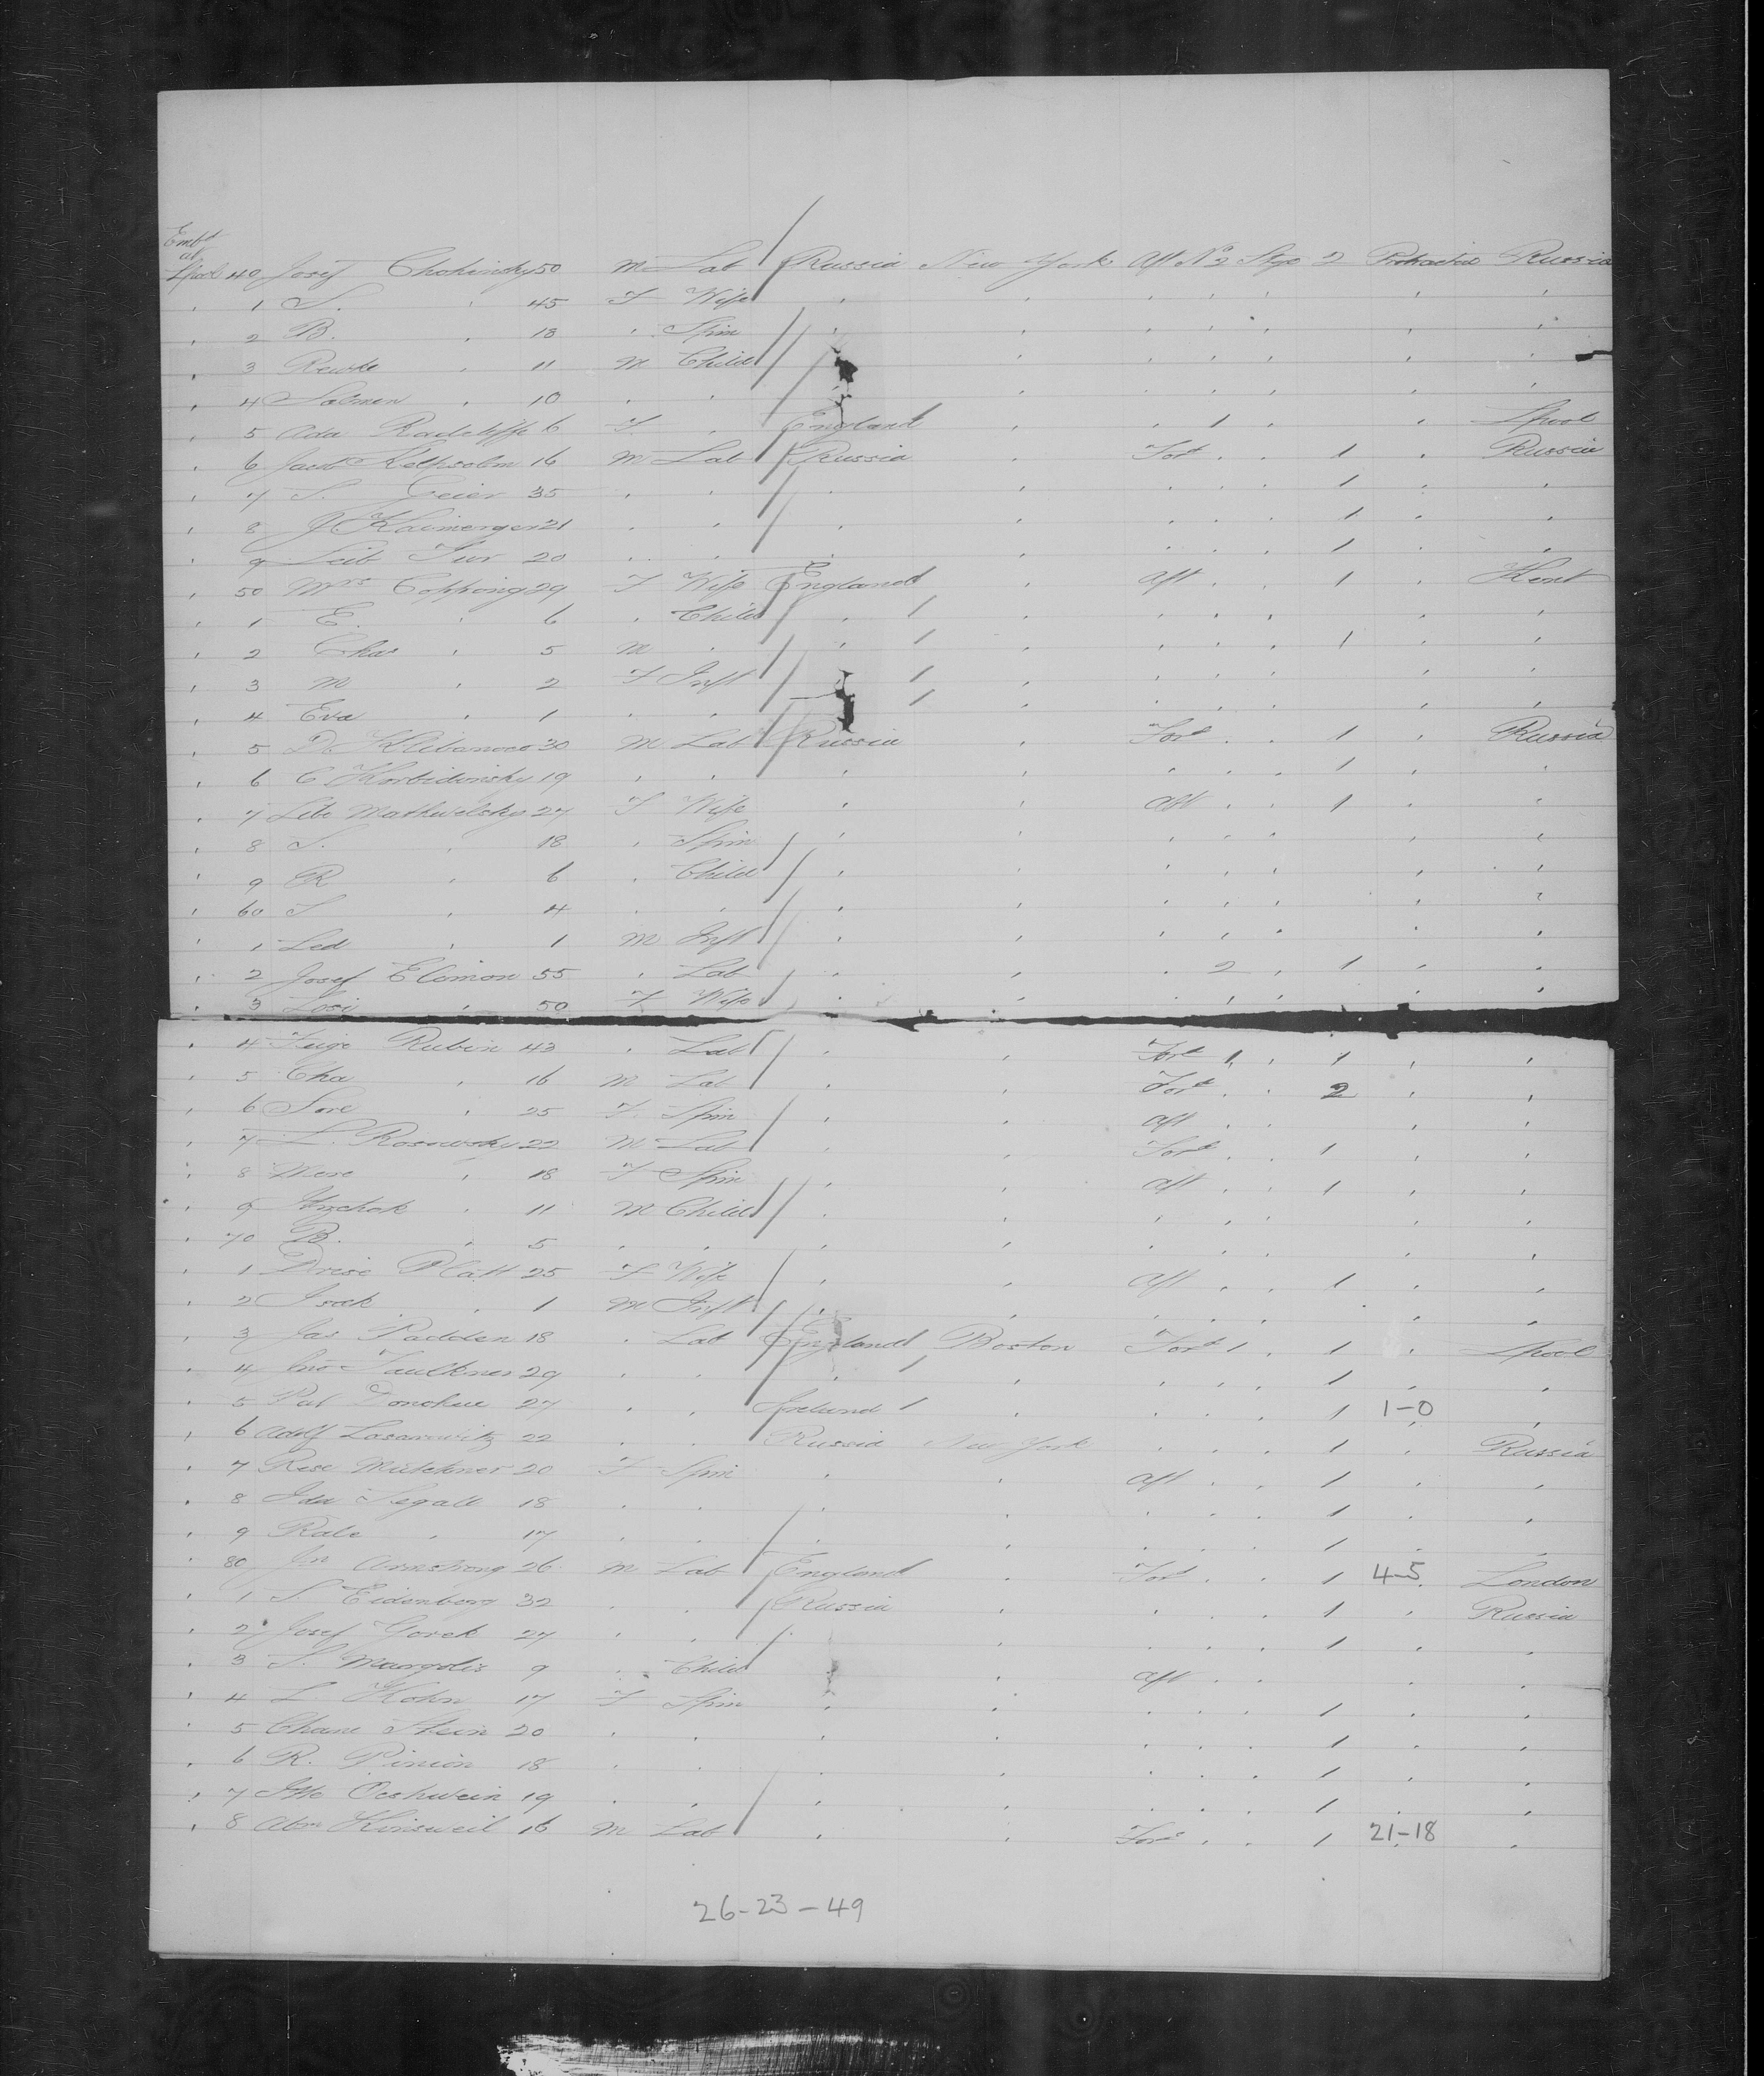 Emb^d
at
Lpool 40 Josef Chokinsky 50 M Lab Russia New York Aft No 2 Stge 2 Protracted Russia
' 1 S. ' 45 F Wife ' ' ' ' ' ' '
' 2 B. ' 18 ' Spin ' ' ' ' ' ' '
' 3 Rewke ' 11 M Child ' ' ' ' ' '
' 4 Salmen ' 10 ' ' ' ' ' ' ' ' '
' 5 Ada Radcliffe 6 F ' England ' ' 1 ' ' Lpool
' 6 Jacob 16 M Lab Russia ' For^d ' ' 1 ' Russia
' 7 S. Geier 35 ' ' ' ' ' ' ' 1 ' '
' 8 J. Klaimerger 21 ' ' ' ' ' ' ' 1 ' '
' 9 Leib Tur 20 ' ' ' ' ' ' ' 1 ' '
' 50 Mrs Copping 29 F Wife England ' Aft ' ' 1 ' Kent
' 1 E. ' 6 ' Child ' ' ' ' ' ' '
' 2 Chas ' 5 M ' ' ' ' ' ' 1 ' '
' 3 M ' 2 F Inft ' ' ' ' ' '
' 4 Eva ' 1 ' ' ' ' ' ' ' '
' 5 D. Klibanow 30 M Lab Russia ' For^d ' ' 1 ' Russia
' 6 C Korbidinsky 19 ' ' ' ' ' ' ' 1 ' '
' 7 Libe Mathwelsky 27 F Wife ' ' Aft ' ' 1 ' '
' 8 S. ' 18 ' Spin ' ' ' ' ' ' '
' 9 R ' 6 ' Child ' ' ' ' ' ' '
' 60 S ' 4 ' ' ' ' ' ' ' ' '
' 1 Led ' 1 M Inft ' ' ' ' ' ' '
' 2 Josef Elimon 55 ' Lab ' ' ' 2 ' 1 ' '
' 3 Losi ' 50 F Wife ' ' ' ' ' ' '
' 4 Feige Rubin 43 ' Lab ' ' For^d 1 ' 1 ' '
' 5 Cha ' 16 M Lab ' ' For^d ' ' 2 ' '
' 6 Sore ' 25 F Spin ' ' Aft ' ' ' '
' 7 L. Rosowsky 22 M Lab ' ' For^d ' ' 1 ' '
' 8 Mere ' 18 F Spin ' ' Aft ' ' 1 ' '
' 9 Itzchok ' 11 M Child ' ' ' ' ' ' '
' 70 B. ' 5 ' ' ' ' ' ' ' ' '
' 1 Drese Platt 25 F Wife ' ' Aft ' ' 1 ' '
' 2 Isak ' 1 M Inft ' ' ' ' ' ' '
' 3 Jas Padden 18 ' Lab England Boston For^d 1 ' 1 ' Lpool
' 4 Jno Faulkner 29 ' ' ' ' ' ' ' 1 ' '
' 5 Pat Donohue 27 ' ' Ireland ' ' ' ' 1 1-0 '
' 6 Adolf Lasarowitz 22 ' ' Russia New York ' ' ' 1 ' Russia
' 7 Rese Mutchner 20 F Spin ' ' Aft ' ' 1 ' '
' 8 Ida Segall 18 ' ' ' ' ' ' ' 1 ' '
' 9 Rale ' 17 ' ' ' ' ' ' ' 1 ' '
' 80 Jn Armstrong 26 M Lab England ' For^d ' ' 1 4-5 London
' 1 S. Eidenberg 32 ' ' Russia ' ' ' ' 1 ' Russia
' 2 Josef Gorek 27 ' ' ' ' ' ' ' 1 ' '
' 3 S. Margolis 9 ' Child ' ' Aft ' ' ' '
' 4 L. Kohn 17 F Spin ' ' ' ' ' 1 ' '
' 5 Chane Stein 20 ' ' ' ' ' ' ' 1 ' '
' 6 R. Pinion 18 ' ' ' ' ' ' ' 1 ' '
' 7 Itte Oeshwein 19 ' ' ' ' ' ' ' 1 ' '
' 8 Abm Kinsweil 16 M Lab ' ' For^d ' ' 1 21-18 '
26-23-49